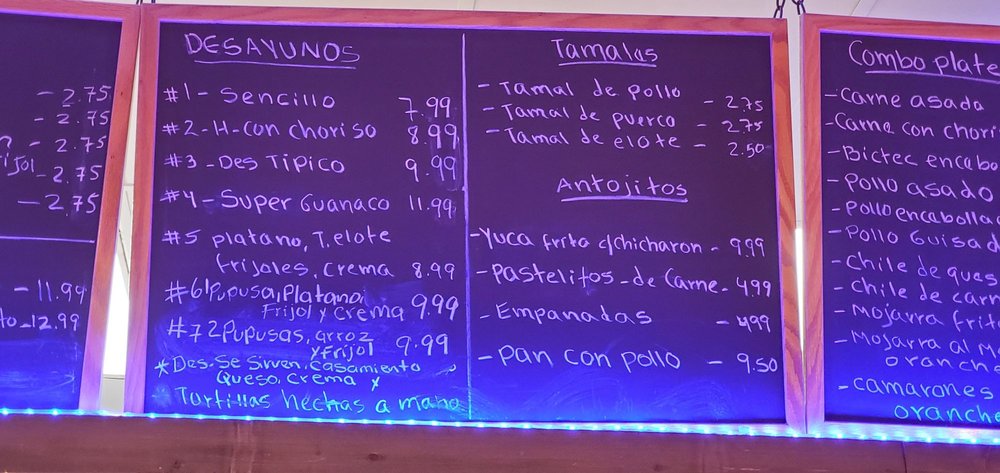 - 2.75
- 2.75
- 2.75
- 2.75
- 2.75
- 11.99
- 12.99
DESAYUNOS
#1 - Sencillo 7.99
#2 - H-con choriso 8.99
#3 - Des Tipico 9.99
#4 - Super Guanaco 11.99
#5 platano, T. elote
frijoles, crema 8.99
#6 1 Pupusa, Platano
Frijol y crema 9.99
#7 2 Pupusas, arroz
y Frijol 9.99
* Des. Se Sirven, casamiento
Queso, crema y
Tortillas hechas a mano
Tamalas
- Tamal de pollo - 2.75
- Tamal de puerco - 2.75
- Tamal de elote - 2.50
Antojitos
- Yuca frita c/chicharon - 9.99
- Pastelitos - de Carne - 4.99
- Empanadas - 4.99
- Pan con pollo - 9.50
Combo plate
- Carne asada
- Carne con chori
- Bictec encebo
- Pollo asado
- Pollo encebolla
- Pollo Guisad
- Chile de ques
- Chile de carn
- Mojarra frit
- Mojarra al M
oranch
- Camarones
oranche